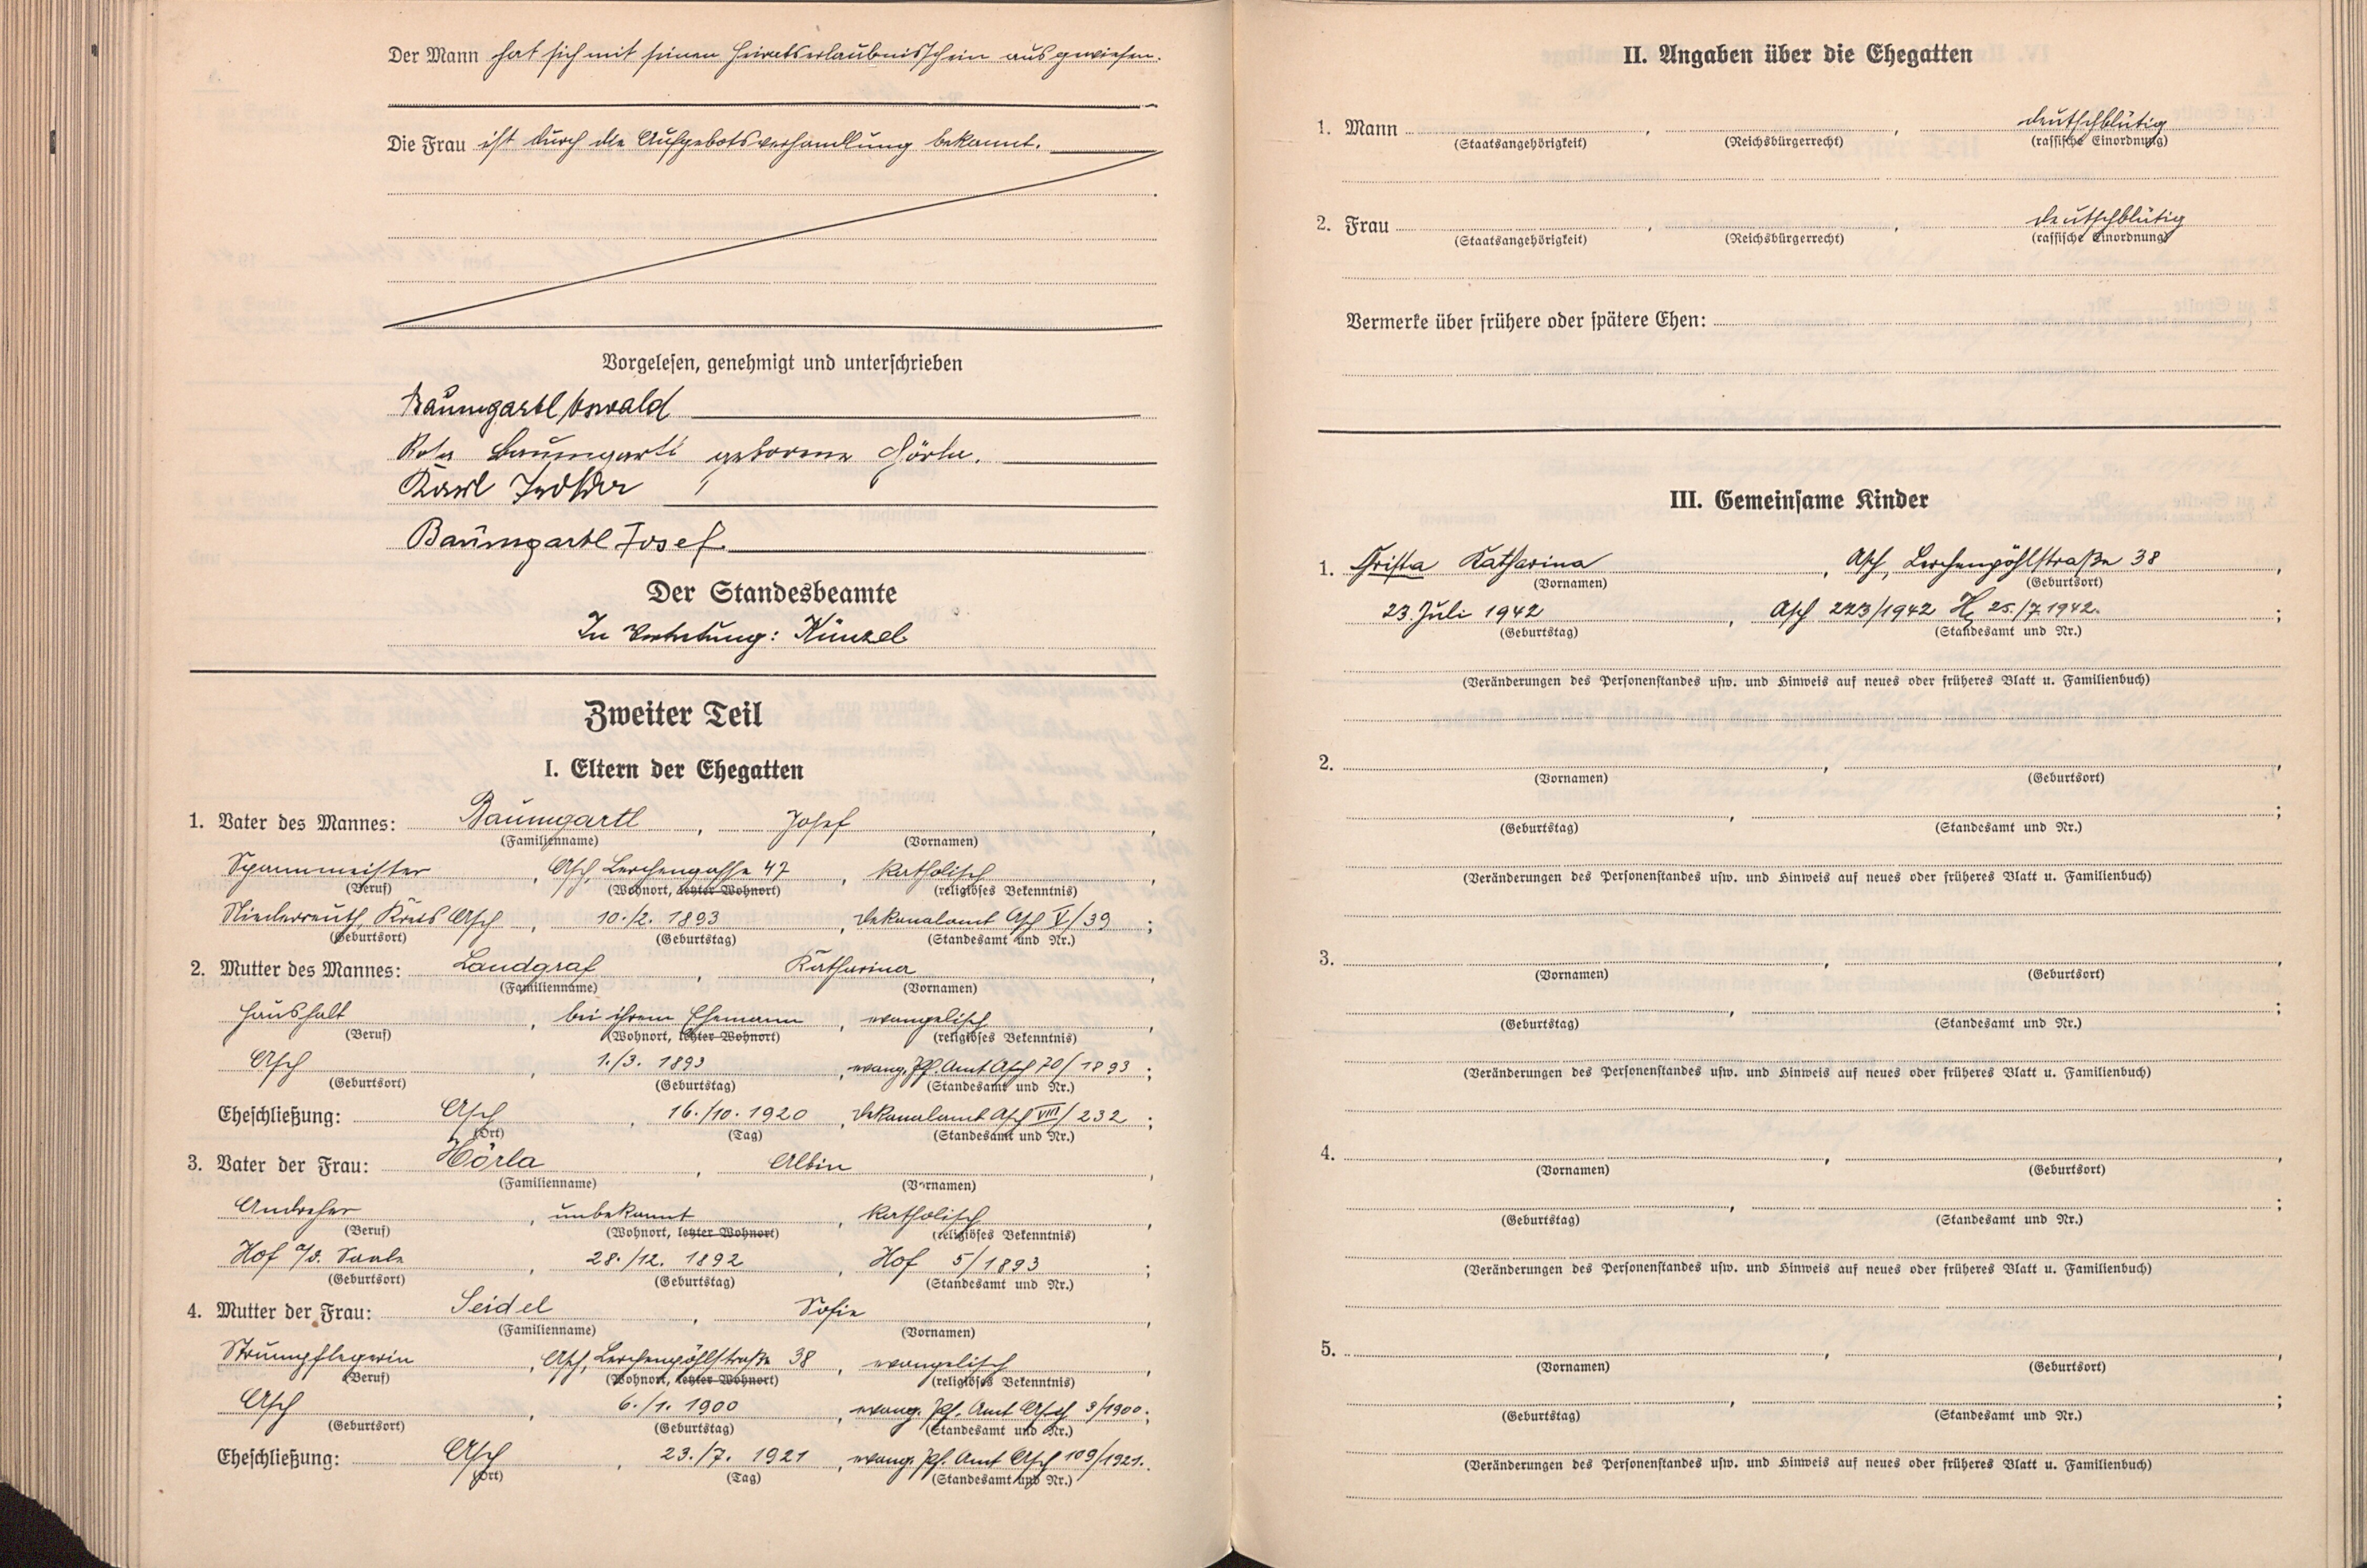 Der Mann hat sich mit seinen Heiratserlaubnisschein ausgewiesen.
Die Frau ist durch die Aufgebotsverhandlung bekannt.
Vorgelesen, genehmigt und unterschrieben
Baumgartl Oswald
Rosa Baumgartl geborene Hörla.
Karl
Baumgartl Josef.
Der Standesbeamte
In Vertretung: Künzel
Zweiter Teil
I. Eltern der Ehegatten
1. Vater des Mannes: Baumgartl, Josef,
(Familienname) (Vornamen)
Spannmeister, Asch, Lerchengasse 47, katholisch,
(Beruf) (Wohnort, letzter Wohnort) (religiöses Bekenntnis)
Niederreuth, Kreis Asch, 10./2. 1893, Dekanalamt Asch V/39;
(Geburtsort) (Geburtstag) (Standesamt und Nr.)
2. Mutter des Mannes: Landgraf, Katharina,
(Familienname) (Vornamen)
Haushalt, bei ihrem Ehemann, evangelisch,
(Beruf) (Wohnort, letzter Wohnort) (religiöses Bekenntnis)
Asch, 1./3. 1893, evang. Pf. Amt Asch 70/1893;
(Geburtsort) (Geburtstag) (Standesamt und Nr.)
Eheschließung: Asch, 16./10. 1920, Dekanalamt Asch VIII/232;
(Ort) (Tag) (Standesamt und Nr.)
3. Vater der Frau: Hörla, Albin,
(Familienname) (Vornamen)
Andreher, unbekannt, katholisch,
(Beruf) (Wohnort, letzter Wohnort) (religiöses Bekenntnis)
Hof a/d. Saale, 28./12. 1892, Hof 5/1893;
(Geburtsort) (Geburtstag) (Standesamt und Nr.)
4. Mutter der Frau: Seidel, Sofie,
(Familienname) (Vornamen)
Strumpflegerin, Asch, Lerchenpöhlstraße 38, evangelisch,
(Beruf) (Wohnort, letzter Wohnort) (religiöses Bekenntnis)
Asch, 6./1. 1900, evang. Pf. Amt Asch 9/1900;
(Geburtsort) (Geburtstag) (Standesamt und Nr.)
Eheschließung: Asch, 23./7. 1921, evang. Pf. Amt Asch 109/1921.
(Ort) (Tag) (Standesamt und Nr.)
II. Angaben über die Ehegatten
1. Mann , , deutschblütig
(Staatsangehörigkeit) (Reichsbürgerrecht) (rassische Einordnung)
2. Frau , , deutschblütig
(Staatsangehörigkeit) (Reichsbürgerrecht) (rassische Einordnung)
Vermerke über frühere oder spätere Ehen:
III. Gemeinsame Kinder
1. Christa Katharina, Asch, Lerchenpöhlstraße 38,
(Vornamen) (Geburtsort)
23. Juli 1942, Asch 223/1942 25./7.1942.;
(Geburtstag) (Standesamt und Nr.)
(Veränderungen des Personenstandes usw. und Hinweis auf neues oder früheres Blatt u. Familienbuch)
2. , ,
(Vornamen) (Geburtsort)
, ;
(Geburtstag) (Standesamt und Nr.)
(Veränderungen des Personenstandes usw. und Hinweis auf neues oder früheres Blatt u. Familienbuch)
3. , ,
(Vornamen) (Geburtsort)
, ;
(Geburtstag) (Standesamt und Nr.)
(Veränderungen des Personenstandes usw. und Hinweis auf neues oder früheres Blatt u. Familienbuch)
4. , ,
(Vornamen) (Geburtsort)
, ;
(Geburtstag) (Standesamt und Nr.)
(Veränderungen des Personenstandes usw. und Hinweis auf neues oder früheres Blatt u. Familienbuch)
5. , ,
(Vornamen) (Geburtsort)
, ;
(Geburtstag) (Standesamt und Nr.)
(Veränderungen des Personenstandes usw. und Hinweis auf neues oder früheres Blatt u. Familienbuch)